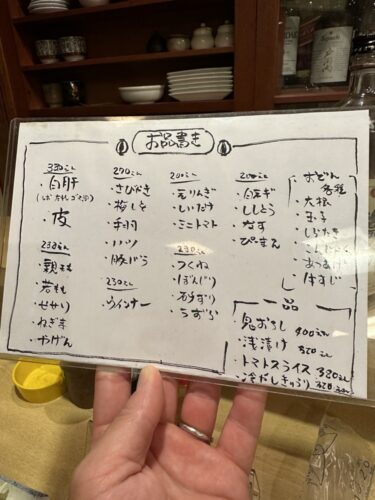 お品書き
330えん
・白肝
・皮
230えん
・親もも
・若もも
・せせり
・ねぎま
・やげん
270えん
・さびやき
・梅しそ
・手羽
・ハツ
・豚バラ
230えん
・ウインナー
200えん
・えりんぎ
・しいたけ
・ミニトマト
230えん
・つくね
・ぼんじり
・砂ずり
・うずら
・ししとう
・なす
・ぴーまん
おでん
各種
・大根
・玉子
・しらたき
・こんにゃく
・あつあげ
・牛すじ
一品
・鬼おろし 400えん
・浅漬け 320えん
・トマトスライス 320えん
・冷やしきゅうり 320えん